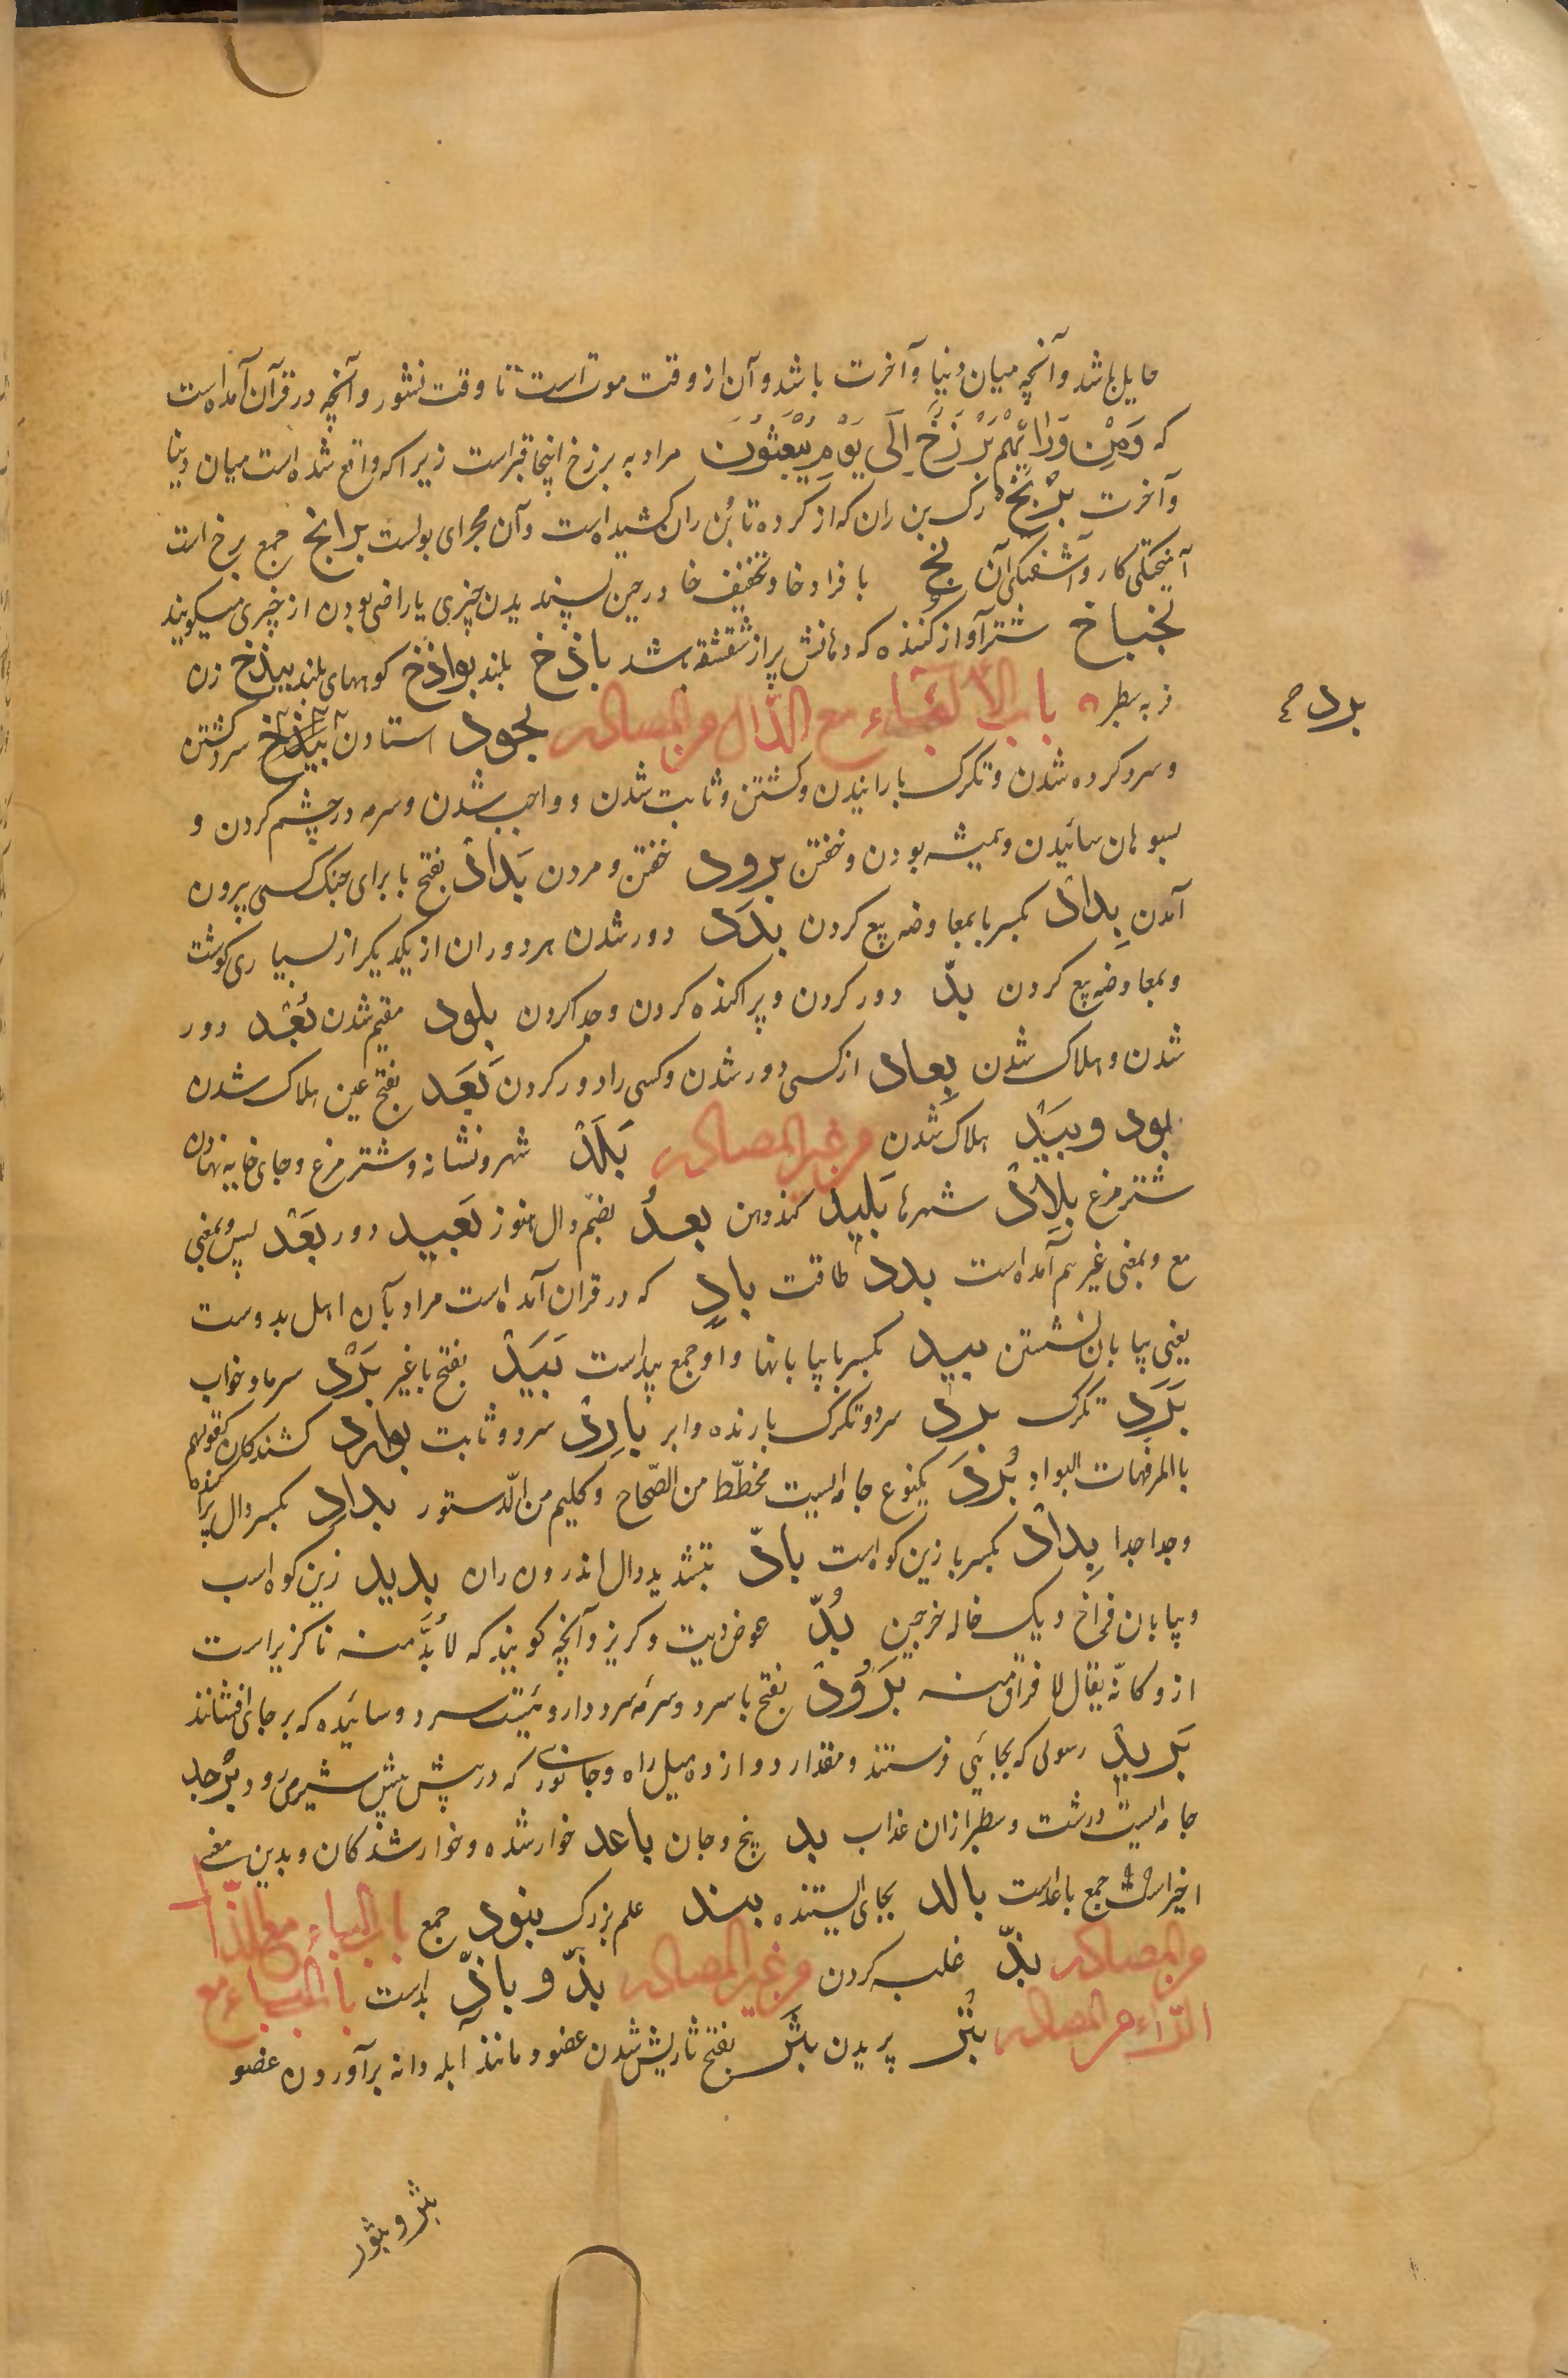 حایل باشد وآنچه میان دنیا وآخرت باشد وآن از وقت موت است تا وقت نشور وآنچه در قرآن آمده است
که وَمِنْ وَرَائِهِمْ بَرْزَخٌ اِلَى یَوْمِ یُبْعَثُوْنَ مراد به برزخ اینجا قبر است زیرا که واقع شده است میان دنیا
وآخرت بَرْبَخ رک بن ران که از کرده تا بُن ران کشیده است وآن مجرای بولست برابخ جمع برخ است
آمیختکی کار وآشفتکی آن بخ با فراد خا وتخفیف خا در حین پسندیدن چیزی یا راضی بودن از چیزی میکویند
بخباخ شتر آواز کننده که دهانش پر از شقشقه باشد باذخ بلند بواذخ کوههای بلند بیذخ زن
فربه سطبر باب الباء مع الدال من المصادر بجود استادن سرد کشتن
برد صح
وسرد کرده شدن وتکرک بارانیدن وکشتن وثابت شدن و واجب شدن وسرمه در چشم کردن و
بسوهان سائیدن وهمیشه بودن وخفتن برود خفتن ومردن بَدادْ بفتح با برای جنک کسی بیرون
آمدن بِدادْ بکسر با بمعاوضه بیع کردن بدَد دور شدن هر دو ران از یکدیکر از بسیاری کوشت
وبمعاوضه بیع کردن بدّ دور کردن وپراکنده کردن وجدا کردن بلود مقیم شدن بُعْد دور
شدن وهلاک شدن بِعاد از کسی دور شدن وکسی را دور کردن بَعَد بفتح عین هلاک شدن
بود وبَیْد هلاک شدن من غیر المصادر بَلَدْ شهر ونشانه وشتر مرغ وجای خایه نهادن
شتر مرغ بِلادْ شهرها بَلید کندذهن بعدُ بضم دال هنوز بَعید دور بَعْد پس وبمعنی
مع وبمعنی غیر هم آمده است بدد طاقت بادٍ که در قران آمده است مراد بآن اهل بدوست
یعنی بیابان نشستن بید بکسر با بیابانها واو جمع بیدا است بَیْدْ بفتح با غیر بَرْد سرما وخواب
بَرَد تکرک برد سرد وتکرک بارنده وابر بارِدْ سرد وثابت بوارد کشندکان کقولهم
باالمرفهات البوارد بُرْدَ یکنوع جامه ایست مخطّط من الصّحاح وکلیم من الدّستور بدادِ بکسر دال پراکنده
وجدا جدا بِدادْ بکسر با زین کوه است بادّ بتشدید دال اندرون ران بدید زین کوه اسب
وبیابان فراخ ویک خاله خرجین بُدّ عوض دیت وکریز وآنچه کویند که لابُدَّ منه ناکزیر است
ازو کانّه یقال لا فراق منه بَرُوْدْ بفتح با سرد وسرمه سرد دارو یست سرد وسائیده که بر جای افشانند
بَریدْ رسولی که بجائی فرستند ومقدار دوازده میل راه وجانوری که در پیش پیش شیر میرود بُرْجد
جامه ایست درشت وسطبر ازان عذاب بد بخ وجان باعد خوار شده وخوار شدکان وبدین معنی
اخیر است جمع باعد است بالد بجای ایستنده بند علم بزرک بنود جمع باب الباء مع الذال
من المصادر بذّ غلبه کردن من غیر المصادر بذّ و باذّ بد است باب الباء مع
الرّاء من المصادر بثْر پریدن بثَر بفتح ثا ریش شدن عضو ومانند آبله دانه برآوردن عضو
بثر وبثور